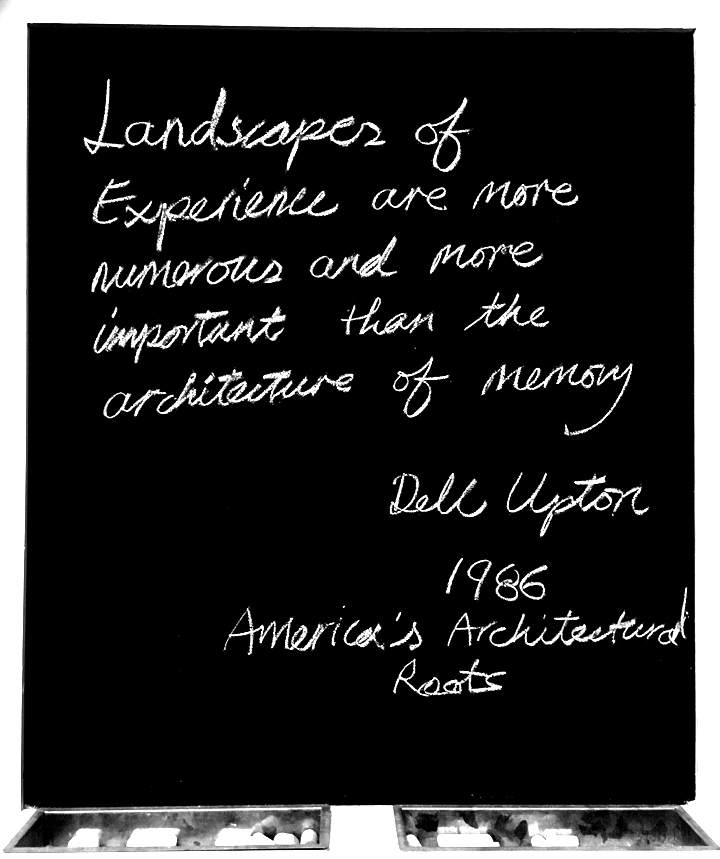 Landscapes of
Experience are more
numerous and more
important than the
architecture of memory
Dell Upton
1986
America's Architectural
Roots